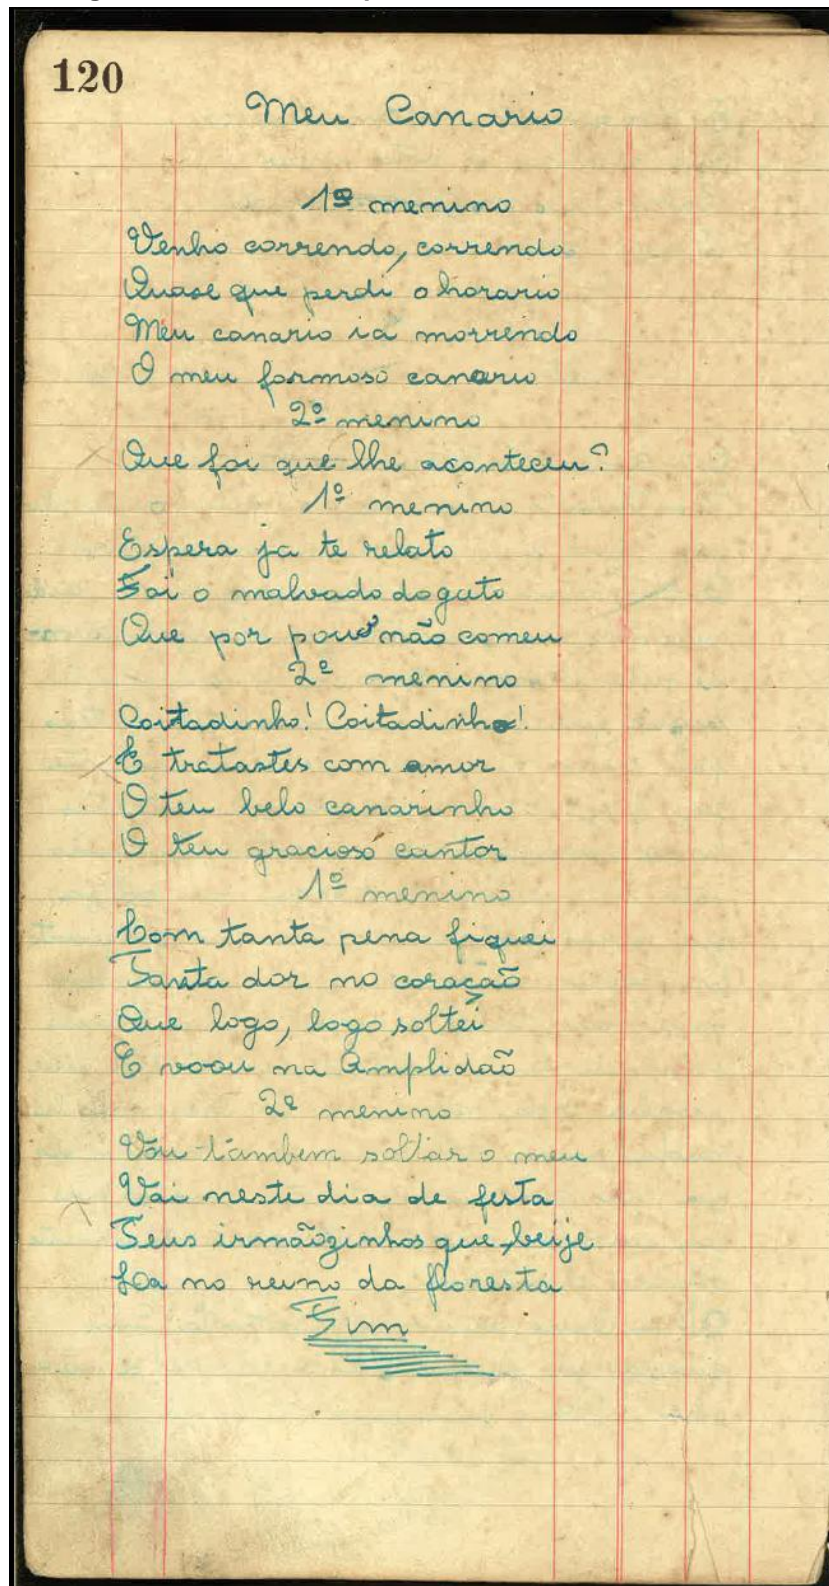 120
Meu Canario
1º menino
Venho correndo, correndo
Quase que perdi o horario
Meu canario ia morrendo
O meu formoso canario
2º menino
Que foi que lhe aconteceu?
1º menino
Espera ja te relato
Foi o malvado do gato
Que por pouco não comeu
2º menino
Coitadinho! Coitadinho!
E tratastes com amor
O teu belo canarinho
O teu gracioso cantor
1º menino
Com tanta pena fiquei
Tanta dor no coração
Que logo, logo soltei
E voou na Amplidão
2º menino
Vou tambem soltar o meu
Vai neste dia de festa
Seus irmãozinhos que beije
La no reino da floresta
Fim